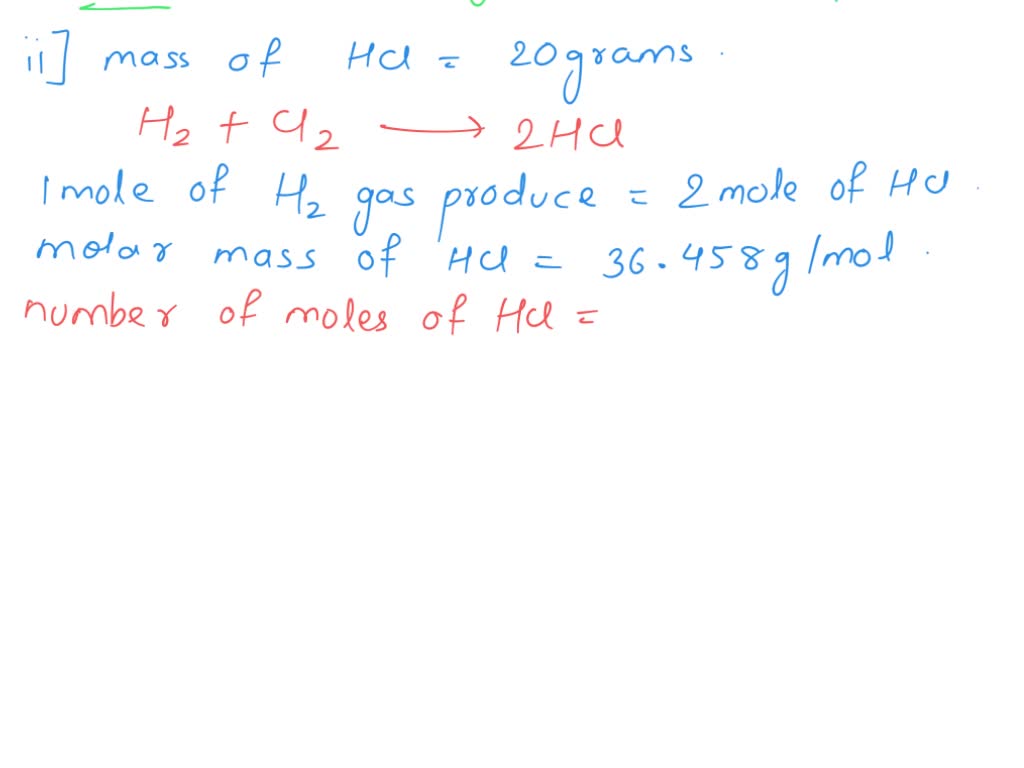 ii] mass of HCl = 20grams.
H₂ + Cl₂ ⟶ 2HCl
1 mole of H₂ gas produce = 2 mole of HCl.
molar mass of HCl = 36.458g/mol.
number of moles of HCl =